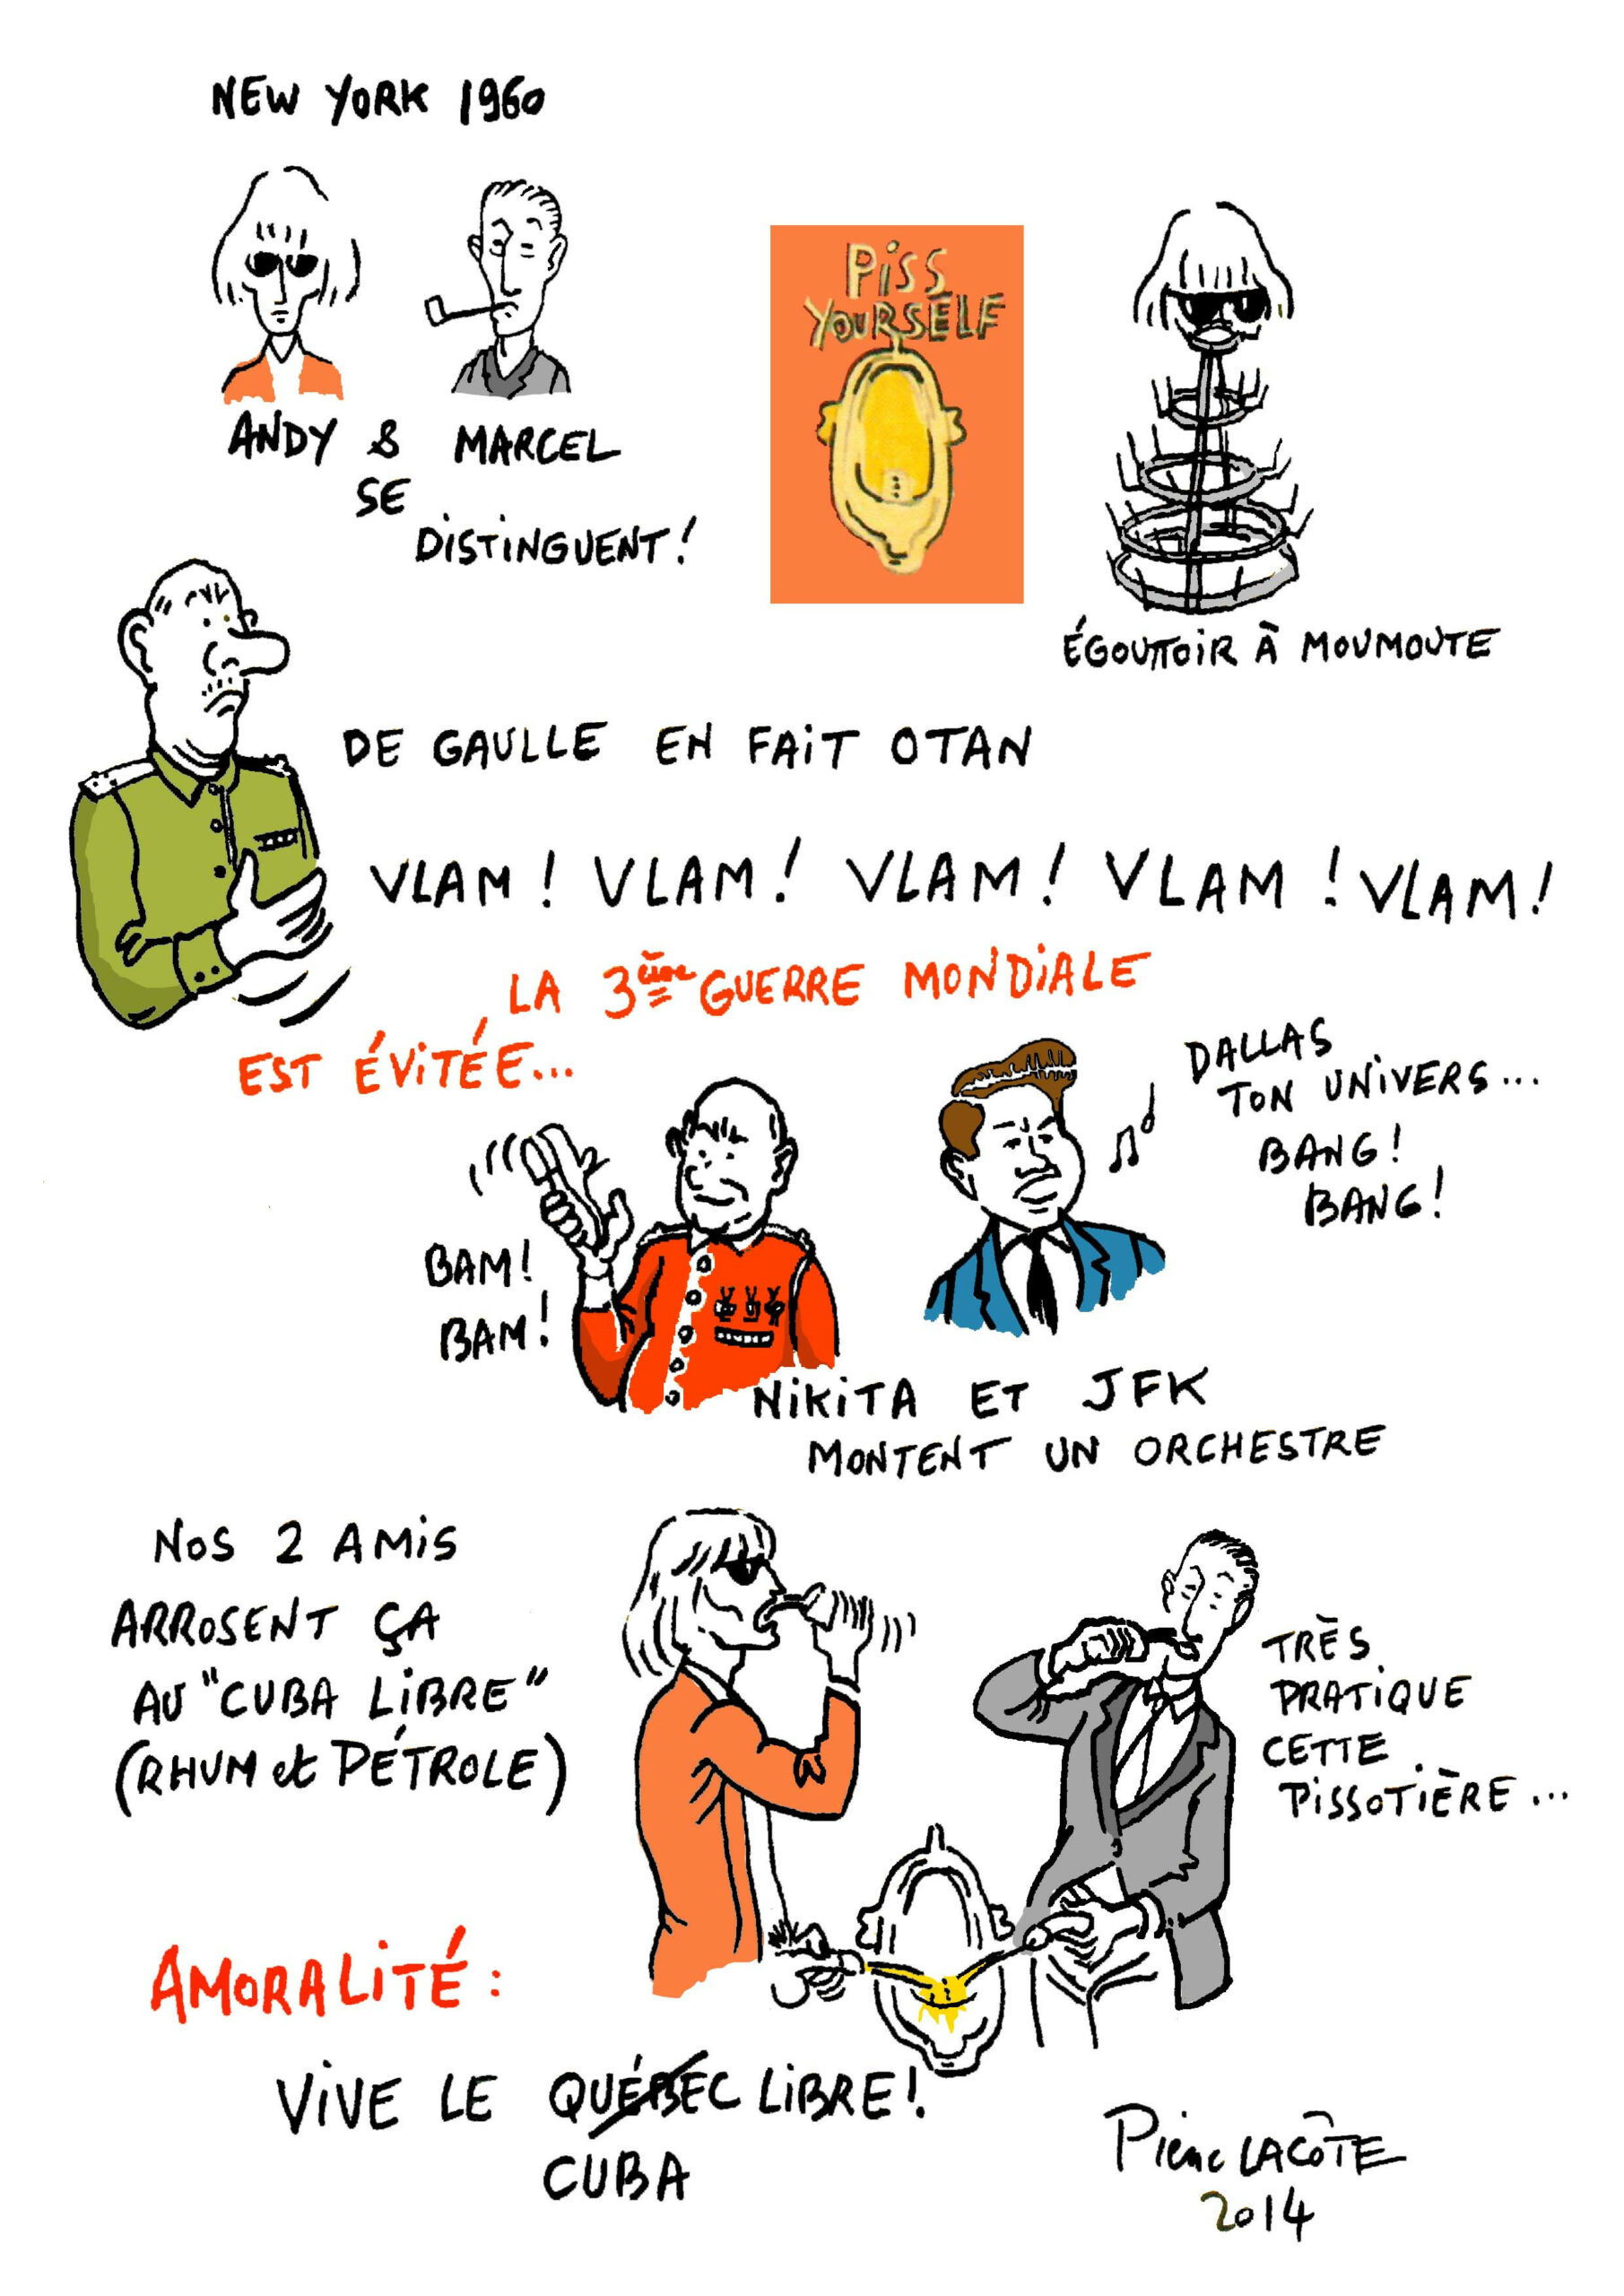 NEW YORK 1960
ANDY & MARCEL
SE
DISTINGUENT!
PISS
YOURSELF
ÉGOUTTOIR À MOUMOUTE
DE GAULLE EN FAIT OTAN
VLAM! VLAM! VLAM! VLAM! VLAM!
LA 3ème GUERRE MONDIALE
EST ÉVITÉE...
DALLAS
TON UNIVERS...
BANG!
BANG!
BAM!
BAM!
NIKITA ET JFK
MONTENT UN ORCHESTRE
NOS 2 AMIS
ARROSENT ÇA
AU "CUBA LIBRE"
(RHUM et PÉTROLE)
TRÈS
PRATIQUE
CETTE
PISSOTIÈRE...
AMORALITÉ:
VIVE LE QUÉBEC LIBRE!
CUBA
Pierre LACÔTE
2014